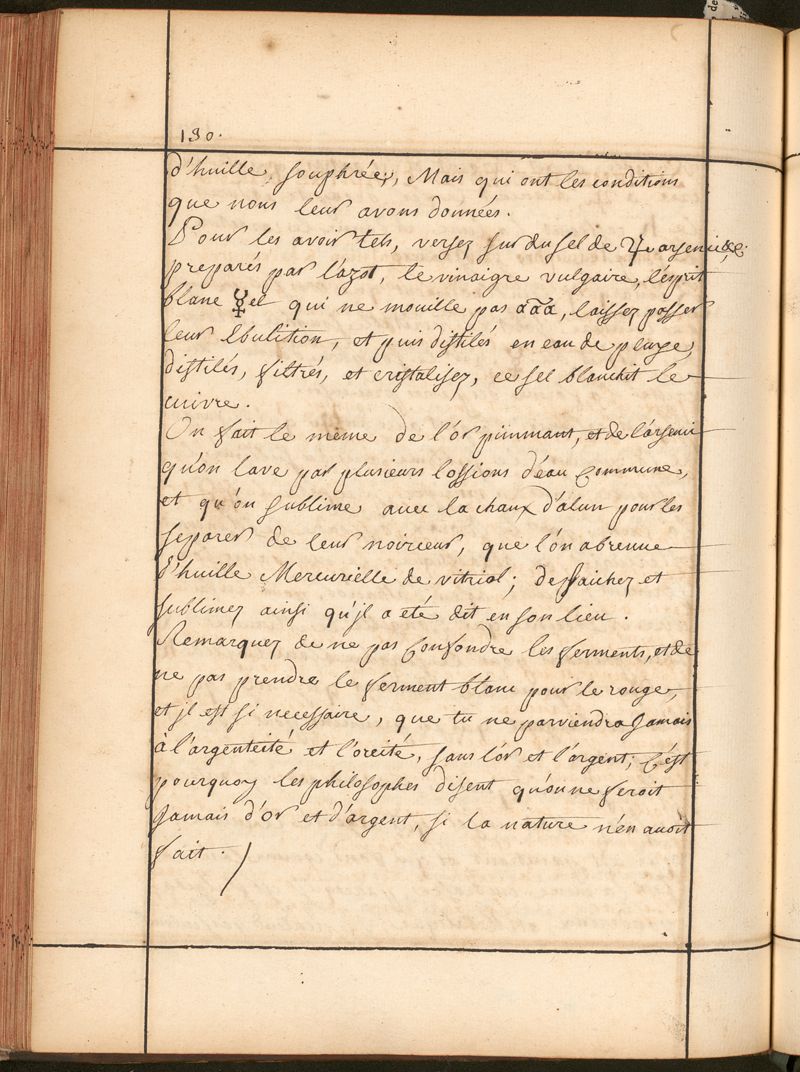 130.
d'huille souphrée, Mais qui ont les conditions
que nous leur avons données.
Pour les avoir tels, versez sur du sel de ♃ arsenical
preparés par l'azot, le vinaigre vulgaire, l'esprit
blanc ☿el qui ne mouille pas aaa, laissez passer
leur Ebulition, et puis distilés en eau de pluye,
distilés, filtrés, et cristalisez, ce sel blanchit le
cuivre.
On fait le même de l'or pimmant, et de l'arsenic
qu'on lave par plusieurs lossions d'eau Commune,
et qu'on sublime avec la chaux d'alun pour les
separer de leur noirceur, que l'on abreuue
d'huille Mercurielle de vitriol; dessaichez et
sublimez ainsi qu'jl a eté dit en son lieu.
Remarquez de ne pas Confondre les ferments, et de
ne pas prendre le ferment blanc pour le rouge,
et jl est si necessaire, que tu ne parviendra Jamais
à l'argenteité et l'oreité, sans l'or et l'argent; C'est
pourquoy les philosophes disent qu'on ne feroit
Jamais d'or et d'argent, si la nature n'en auoit
fait.